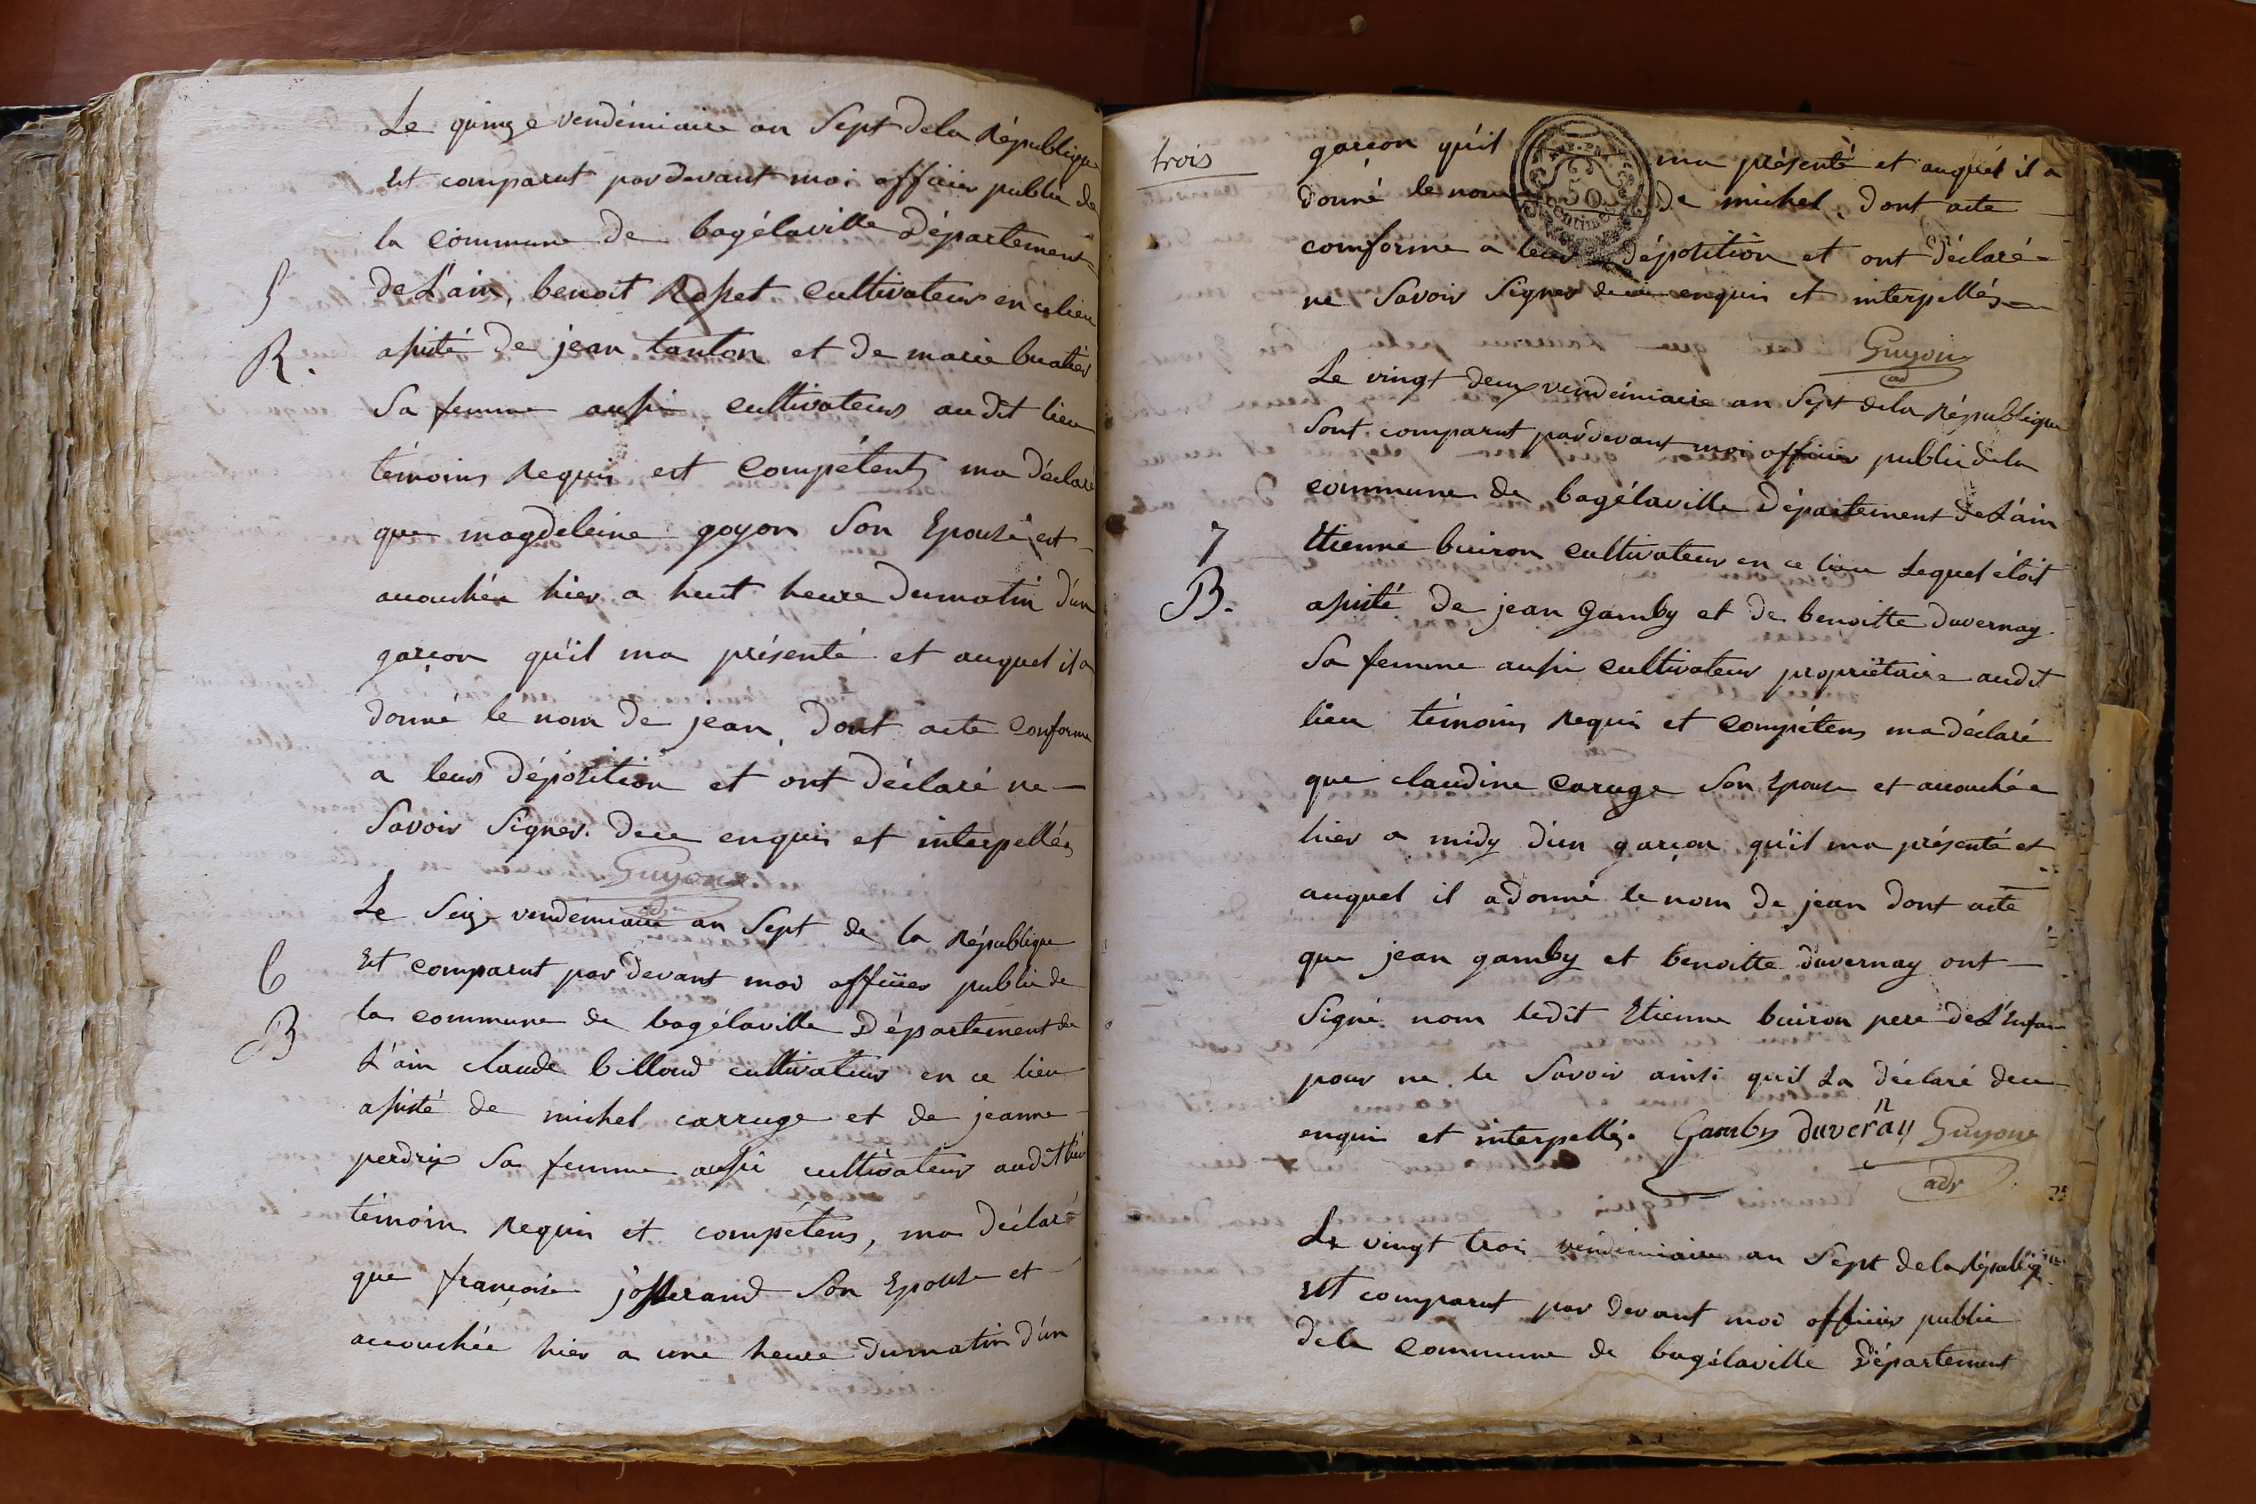 Le quinze vendémiaire an Sept dela République
Est comparut pardevant moi officier public de
la commune de bagélaville Département
5
de L'ain, benoit Rosset cultivateur en ce lieu
R.
assisté de jean tanton et de marie buatier
Sa femme aussi cultivateurs au dit lieu
témoins Requis est Compétents ma déclaré
que magdeleine goyon Son Epouse est
acouchée hier a huit heure Dumatin d'un
garçon qu'il ma présenté et auquel il a
donné le nom de jean, Dont acte Conforme
a leur déposition et ont déclaré ne
Savoir Signer. Dece enquis et interpellés
Guyon
Le Seize vendémiaire an Sept de la République
6
Est comparut par devant moi officier public de
B
la commune de bagélaville Département de
L'ain claude billoud cultivateur en ce lieu
assisté de michel carruge et de jeanne
perdrix Sa femme aussi cultivateur audit lieu
témoins Requis et compétens, ma déclaré
que françoise josserand Son Epouse et
acouchée hier a une heure dumatin d'un
trois
garçon qu'il ma présenté et auquel il a
50
donné le nom de michel, Dont acte
comforme a leur déposition et ont déclaré
ne Savoir Signer dece enquis et interpellés
Guyon
Le vingt deux vendémiaire an Sept dela République
Sont comparut pardevant moi officier public dela
commune de bagélaville Département de L'ain
7
Etienne buiron cultivateur en ce lieu Lequel étoit
B.
assisté de jean Gamby et de benoitte duvernay
Sa femme aussi cultivateur propriétaire audit
lieu témoins Requis et Compétens ma déclaré
que claudine Caruge Son Epouse et acouchée
hier a midy d'un garçon qu'il ma présenté et
auquel il a donné le nom de jean Dont acte
que jean gamby et benoitte duvernay ont
Signé nom ledit Etienne buiron pere de L'Enfan
pour ne le Savoir ainsi quil La déclaré dece
enquis et interpellés. Gamby duvernay Guyon
adj
Le vingt trois vendémiaire an Sept dela République
Est comparut par devant moi officier public
dela Commune de bagélaville Département